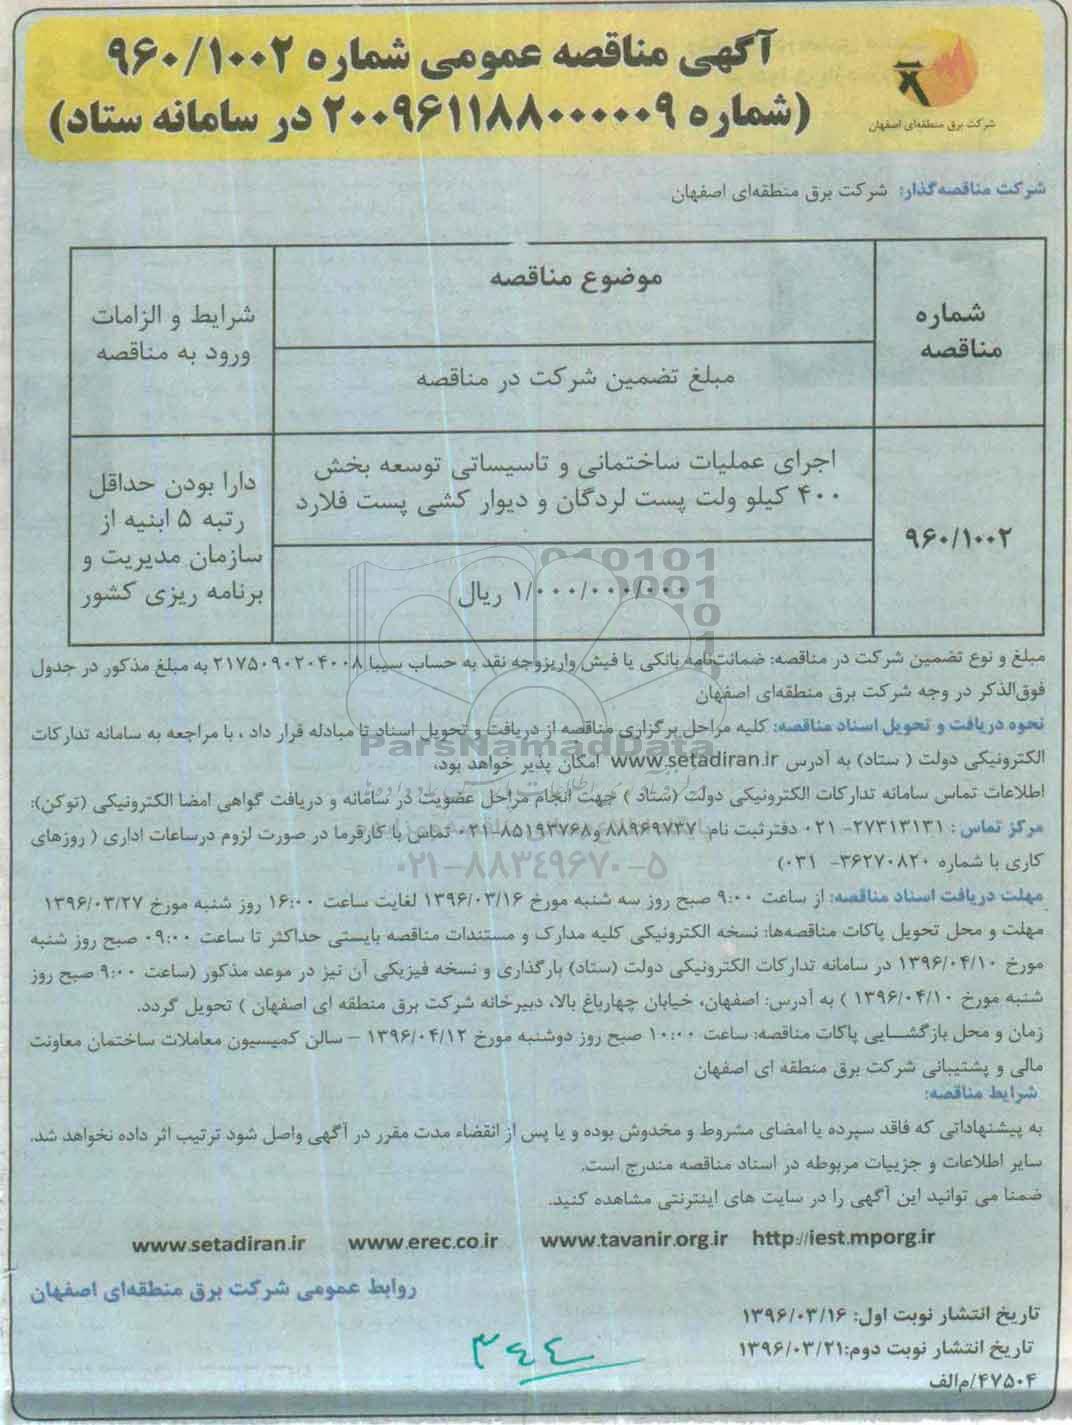 آگهی مناقصه عمومی شماره ۹۶۰/۱۰۰۲
(شماره ۲۰۰۹۶۱۱۸۸۰۰۰۰۰۹ در سامانه ستاد)
شرکت برق منطقه‌ای اصفهان
شرکت مناقصه‌گذار: شرکت برق منطقه‌ای اصفهان
شماره مناقصه
موضوع مناقصه
مبلغ تضمین شرکت در مناقصه
شرایط و الزامات
ورود به مناقصه
۹۶۰/۱۰۰۲
اجرای عملیات ساختمانی و تاسیساتی توسعه بخش
۴۰۰ کیلو ولت پست لردگان و دیوار کشی پست فلارد
۱/۰۰۰/۰۰۰/۰۰۰ ریال
دارا بودن حداقل
رتبه ۵ ابنیه از
سازمان مدیریت و
برنامه ریزی کشور
مبلغ و نوع تضمین شرکت در مناقصه: ضمانت‌نامه بانکی یا فیش واریزوجه نقد به حساب سیبا ۲۱۷۵۰۹۰۲۰۴۰۰۸ به مبلغ مذکور در جدول
فوق‌الذکر در وجه شرکت برق منطقه‌ای اصفهان
نحوه دریافت و تحویل اسناد مناقصه: کلیه مراحل برگزاری مناقصه از دریافت و تحویل اسناد تا مبادله قرار داد ، با مراجعه به سامانه تدارکات
الکترونیکی دولت ( ستاد) به آدرس www.setadiran.ir امکان پذیر خواهد بود،
اطلاعات تماس سامانه تدارکات الکترونیکی دولت (ستاد ) جهت انجام مراحل عضویت در سامانه و دریافت گواهی امضا الکترونیکی (توکن):
مرکز تماس : ۲۷۳۱۳۱۳۱- ۰۲۱ دفترثبت نام ۸۸۹۶۹۷۳۷ و۸۵۱۹۳۷۶۸-۰۲۱ تماس با کارفرما در صورت لزوم درساعات اداری ( روزهای
کاری با شماره ۳۶۲۷۰۸۲۰- ۰۳۱)
مهلت دریافت اسناد مناقصه: از ساعت ۹:۰۰ صبح روز سه شنبه مورخ ۱۳۹۶/۰۳/۱۶ لغایت ساعت ۱۶:۰۰ روز شنبه مورخ ۱۳۹۶/۰۳/۲۷
مهلت و محل تحویل پاکات مناقصه‌ها: نسخه الکترونیکی کلیه مدارک و مستندات مناقصه بایستی حداکثر تا ساعت ۰۹:۰۰ صبح روز شنبه
مورخ ۱۳۹۶/۰۴/۱۰ در سامانه تدارکات الکترونیکی دولت (ستاد) بارگذاری و نسخه فیزیکی آن نیز در موعد مذکور (ساعت ۹:۰۰ صبح روز
شنبه مورخ ۱۳۹۶/۰۴/۱۰ ) به آدرس: اصفهان، خیابان چهارباغ بالا، دبیرخانه شرکت برق منطقه ای اصفهان ) تحویل گردد.
زمان و محل بازگشایی پاکات مناقصه: ساعت ۱۰:۰۰ صبح روز دوشنبه مورخ ۱۳۹۶/۰۴/۱۲ – سالن کمیسیون معاملات ساختمان معاونت
مالی و پشتیبانی شرکت برق منطقه ای اصفهان
شرایط مناقصه:
به پیشنهاداتی که فاقد سپرده یا امضای مشروط و مخدوش بوده و یا پس از انقضاء مدت مقرر در آگهی واصل شود ترتیب اثر داده نخواهد شد.
سایر اطلاعات و جزییات مربوطه در اسناد مناقصه مندرج است.
ضمنا می توانید این آگهی را در سایت های اینترنتی مشاهده کنید.
www.setadiran.ir www.erec.co.ir www.tavanir.org.ir http://iest.mporg.ir
روابط عمومی شرکت برق منطقه‌ای اصفهان
تاریخ انتشار نوبت اول: ۱۳۹۶/۰۳/۱۶
تاریخ انتشار نوبت دوم:۱۳۹۶/۰۳/۲۱
۴۷۵۰۴/م‌الف
۳۴۴
ParsNamadData
۰۲۱-۸۸۳۴۹۶۷۰-۵